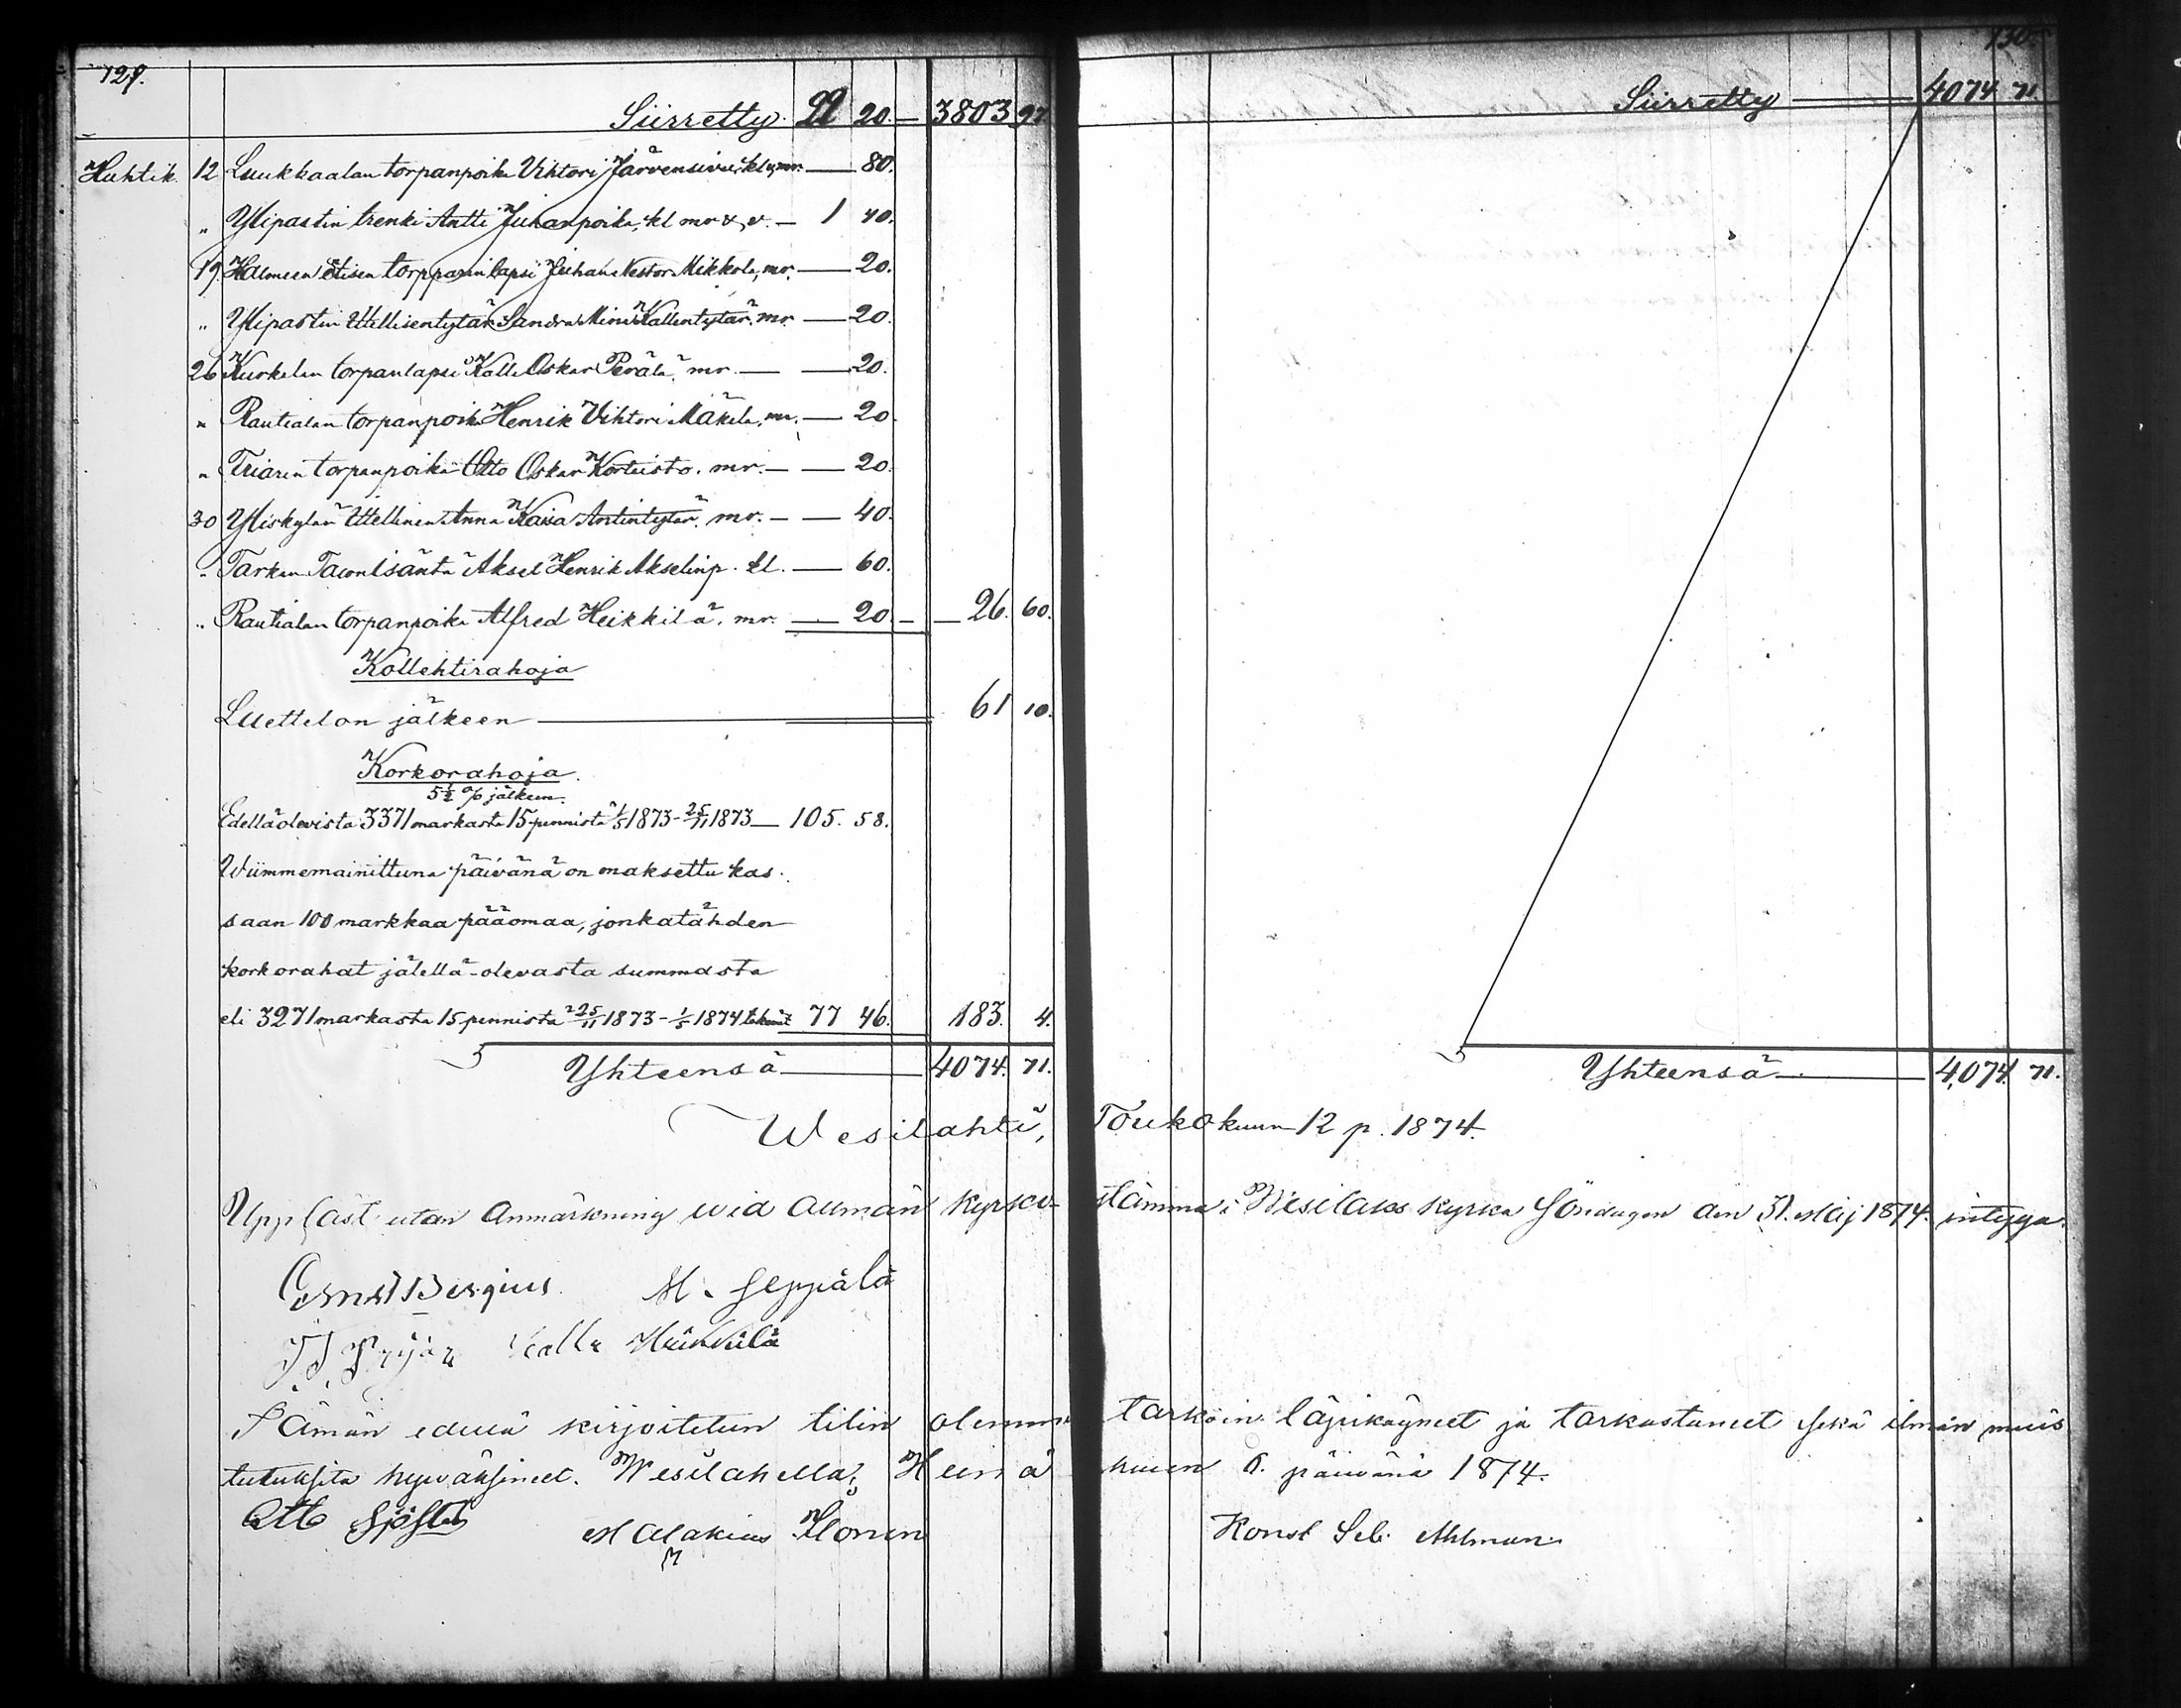 129.
Siirretty. 22 20. — 3803 97.
Huhtik. 12 Luukkaalan torpanpoika Vihtori Järvensivu, kl & mr. — 80.
„ Ylipastin trenki Antti Juhanpoika, kl mr & v. — 1 40.
19 Halmeen Eitisen torpparin lapsi Juhan Nestor Mikkola, mr. — 20.
„ Ylipastin Itellisentytär Sandra Mina Kallentytär. mr. — 20.
26 Kurkelan torpanlapsi Kalle Oskar Perälä. mr. — 20.
„ Rautialan torpanpoika Henrik Vihtori Mäkelä, mr. — 20.
„ Triarin torpanpoika Otto Oskar Korteisto. mr. — 20.
30 Yliskylän Itellinen Anna Kaisa Antintytär. mr. — 40.
„ Tarkan Talon Isäntä Aksel Henrik Akselinp. kl. — 60.
„ Rautialan torpanpoika Alfred Heikkilä. mr. — 20 — 26. 60.
Kollehtirahoja
Luettelon jälkeen — 61 10.
Korkorahoja.
5½ % jälkeen.
Edelläolevista 3371 markasta 15 pennistä 1/5 1873 - 25/11 1873 — 105. 58.
Wiimmemainittuna päivänä on maksettu kas-
saan 100 markkaa pääomaa, jonkatähden
korkorahat jälellä-olevasta summasta
eli 3271 markasta 15 pennistä 25/11 1873 - 1/5 1874 tekevät 77 46. 183. 4.
Yhteensä — 4074. 71.
130.
Siirretty — 4074 71.
Yhteensä — 4,074. 71.
Wesilahti, Toukokuun 12 p. 1874.
Uppläst utan Anmärkning wid Allmän Kyrko-stämma i Wesilaks kyrka Söndagen den 31. Maij 1874. intyga.
Ernst Bergius. M. Seppälä
Kalle Heikkilä
Tämän edellä kirjoitetun tilin olemme tarkoin läpikäyneet ja tarkastaneet sekä ilman muis
tutuksita hyväksyneet. Wesilahella, Heinä kuun 6. päivänä 1874.
Otto Sjöstedt Malakias Ilonen Konst Seb. Ahlman.